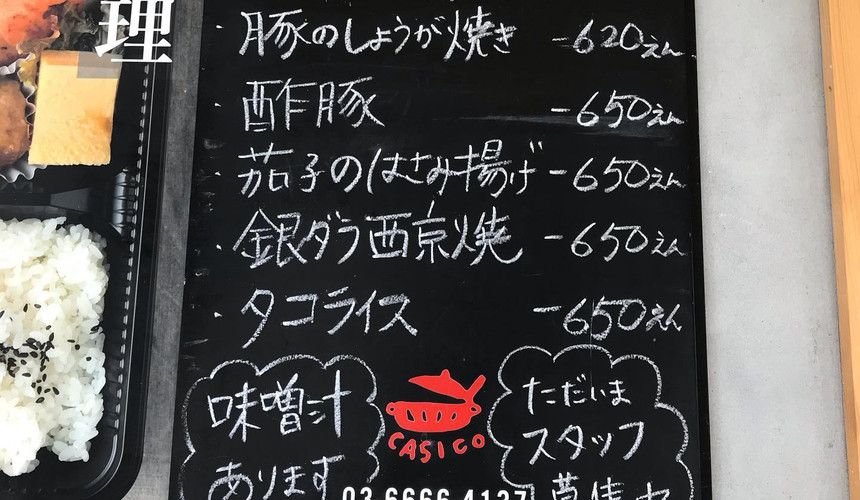 理
・豚のしょうが焼き -620えん
・酢豚 -650えん
・茄子のはさみ揚げ -650えん
・銀ダラ西京焼 -650えん
・タコライス -650えん
味噌汁
あります
CASICO
ただいま
スタッフ
募集中
03 6666 4137